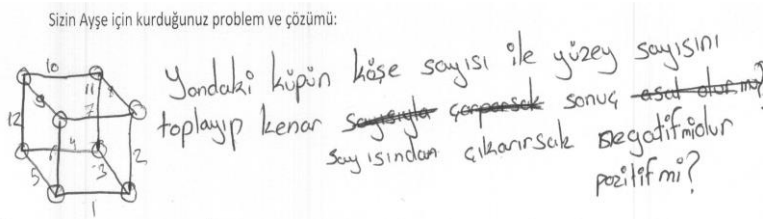 Sizin Ayşe için kurduğunuz problem ve çözümü:
10
Yandaki küpün köşe sayısı ile yüzey sayısını
11
9
7
12
toplayıp kenar sayısıyla çarparsak sonuç asal olur mu?
sayısından çıkarırsak negatifmiolur
4
2
3
5
pozitif mi?
1